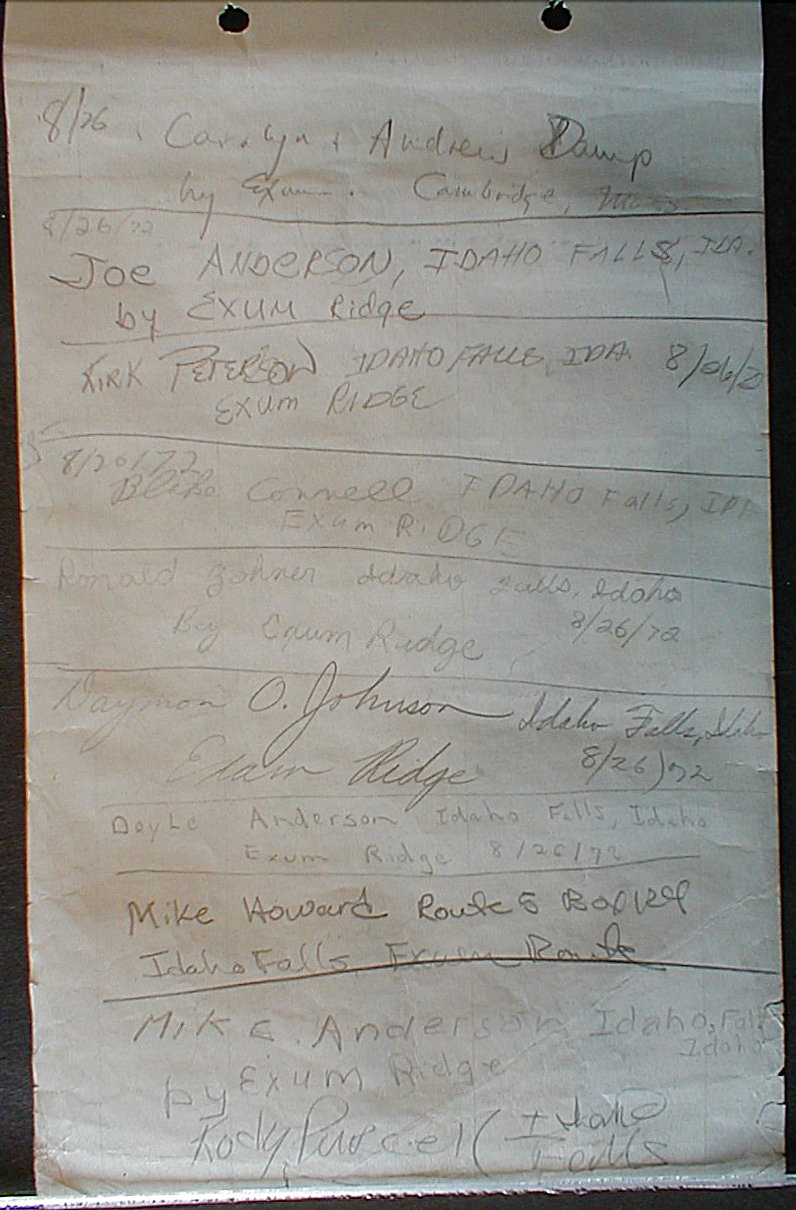 8/26 Carolyn + Andrew Damp
by Exum. Cambridge, Mass
8/26/72
Joe ANDERSON, IDAHO FALLS, IDA.
by EXUM Ridge
KIRK PETERSON IDAHO FALLS, IDA 8/26/72
EXUM RIDGE
8/26/72
Connell IDAHO Falls, IDA
EXUM RIDGE
Ronald Zohner Idaho Falls, Idaho
By Exum Ridge 8/26/72
Daymon O. Johnson Idaho Falls, Idaho
Exum Ridge 8/26/72
DoyLe Anderson Idaho Falls, Idaho
Exum Ridge 8/26/72
Mike Howard Route 5
Idaho Falls Exum Route
Mike Anderson Idaho, Falls
Idaho
by Exum Ridge
Kody Purcel (Idaho
Falls